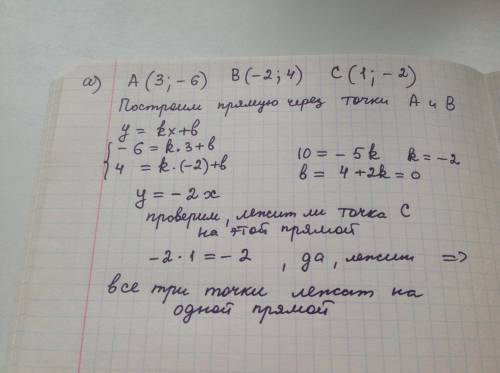 а) A (3; -6) B (-2; 4) C (1; -2)
Построим прямую через точки A и B
y = kx+b
{ -6 = k·3+b 10 = -5k k = -2
4 = k·(-2)+b b = 4+2k = 0
y = -2x
проверим, лежит ли точка C
на этой прямой
-2·1 = -2 , да, лежит =>
все три точки лежат на
одной прямой